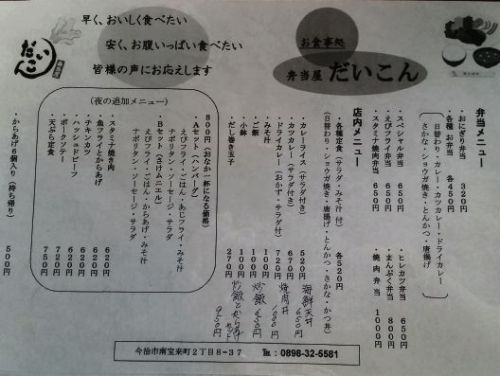 早く、おいしく食べたい
安く、お腹いっぱい食べたい
皆様の声にお応えします
お食事処
弁当屋 だいこん
だいこん
弁当メニュー
・おにぎり弁当 320円
・各種 お弁当 各450円
(日替わり・カレー・カツカレー・ドライカレー
さかな・ショウガ焼き・とんかつ・唐揚げ)
・スペシャル弁当 650円
・えびフライ弁当 650円
・スタミナ焼肉弁当 650円
・ヒレカツ弁当 650円
・まんぷく弁当 800円
・焼肉弁当 1000円
店内メニュー
・各種定食 (サラダ・みそ汁 付) 各520円
(日替わり・ショウガ焼き・唐揚げ・とんかつ・さかな・かつ丼)
・カレーライス(サラダ付き) 520円
・カツカレー (サラダ付き) 670円
・ドライカレー (おかず・サラダ付) 720円
・みそ汁 100円
・ご飯 100円
・小鉢 100円
・だし巻き玉子 270円
海鮮天丼 650円
焼肉丼
炒飯
(夜の追加メニュー)
800円(おなか一杯になる価格)
・Aセット(ハンバーグ)
えびフライ・ごはん・あじフライ・みそ汁
ナポリタン・ソーセージ・サラダ
・Bセット(さけムニエル)
えびフライ・ごはん・からあげ・みそ汁
ナポリタン・ソーセージ・サラダ
・スタミナ焼き肉 620円
・魚フライとからあげ 620円
・チキンカツ 620円
・ハッシュドビーフ 620円
・ポークソテー 720円
・天ぷら定食 750円
・からあげ6個入り (持ち帰り) 500円
今治市南宝来町2丁目8-37 ℡:0898-32-5581